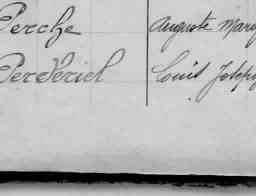 Perche Auguste Mary
Perderiel Louis Joseph